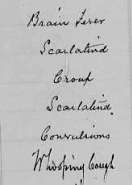 Brain Fever
Scarlatina
Croup
Scarlatina
Convulsions
Whooping Cough